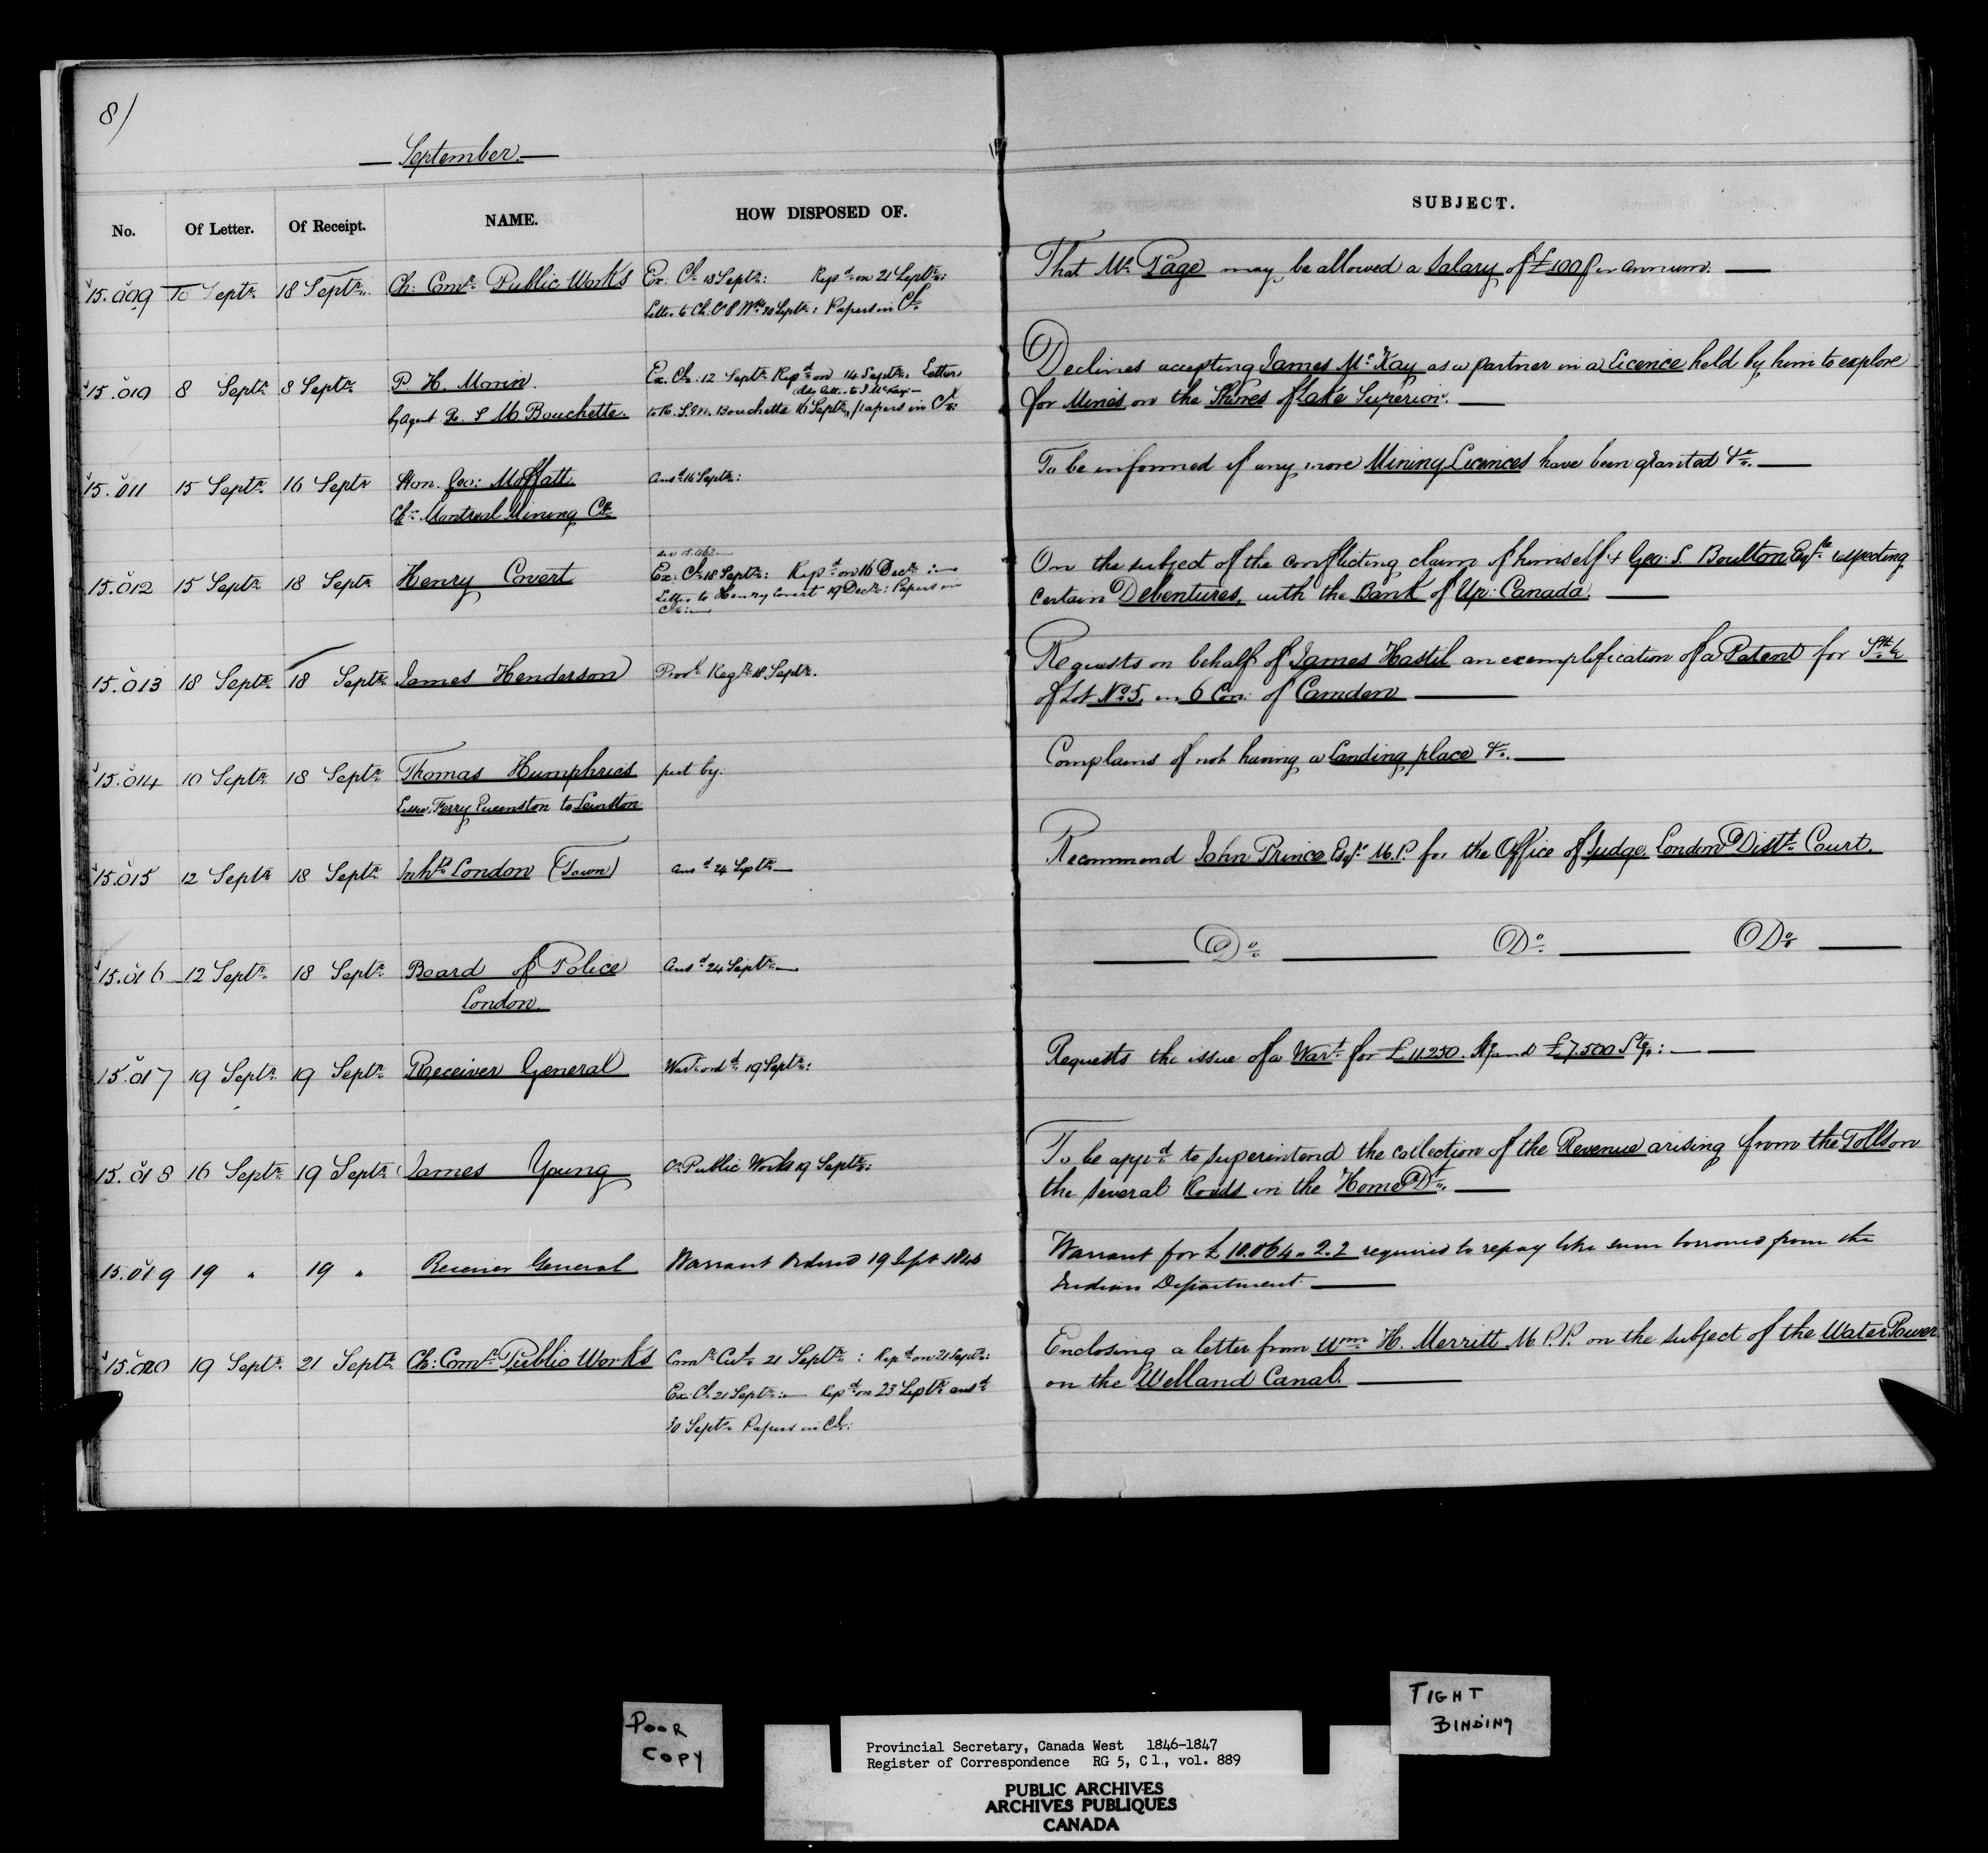 8)
September.
No. Of Letter. Of Receipt. NAME. HOW DISPOSED OF. SUBJECT.
15.009 10 Septr. 18 Septr. Ch: Comr. Public Works Ex: Cl. 18 Septr: Repd. on 21 Septr: That Mr. Page may be allowed a Salary of £100 per annum.
Letter to Ch. C P Wks 30 Septr: Papers in Cl.
15.010 8 Septr. 8 Septr. P. H. Morin. Ex. Cl: 12 Septr. Repd. on 14 Septr. Letter Declines accepting James McKay as a partner in a Licence held by him to explore
also lettr. to J McKay
by Agent R. S M. Bouchette. to R. S. M. Bouchette 16 Septr., papers in Cl: for Mines on the Shores of Lake Superior.
15.011 15 Septr. 16 Septr Hon. Geo: Moffatt. Ansd 16 Septr: To be informed if any more Mining Licences have been granted &c.
Chn. Montreal Mining Co.
15.012 15 Septr. 18 Septr. Henry Covert Ex: Cl. 18 Septr: Repd. on 16 Decr: On the subject of the conflicting claim of himself & Geo: S. Boulton Esqre. respecting
Letter to Henry Covert 19 Decr: Papers in certain Debentures, with the Bank of Up: Canada.
Cl:
15.013 18 Septr. 18 Septr. James Henderson Provl. Regr. 18 Septr. Requests on behalf of James Hastil an exemplification of a Patent for Sth. ½
of Lot No. 5. in 6 Con: of Camden
15.014 10 Septr. 18 Septr. Thomas Humphries put by. Complains of not having a landing place &c.
Lessee, Ferry Queenston to Lewiston
15.015 12 Septr. 18 Septr. Inhts. London (Town) Ansd 24 Septr. Recommend John Prince Esqr. M.P. for the Office of Judge, London Distt. Court.
15.016 12 Septr. 18 Septr. Board of Police Ansd 24 Septr. Do. Do. Do.
London.
15.017 19 Septr. 19 Septr. Receiver General Wart. ordd. 19 Septr: Requests the issue of a Wart. for £11250. Stg. and £7.500 Stg:
15.018 16 Septr. 19 Septr. James Young Cn. Public Works 19 Septr: To be appd. to superintend the collection of the Revenue arising from the Tolls on
the several Roads in the Home Dt.
15.019 19 " 19 " Receiver General Warrant Ordered 19 Sept 1846 Warrant for £10.064.2.2 required to repay like sum borrowed from the
Indian Department.
15.020 19 Septr. 21 Septr. Ch: Comr. Public Works Comr. Cus. 21 Septr: Repd on 21 Septr: Enclosing a letter from Wm. H. Merritt M.P.P. on the subject of the Water Power
Ex: Cl. 21 Septr: Repd. on 23 Septr. ansd. on the Welland Canal.
30 Septr. Papers in Cl:
POOR
COPY
TIGHT
BINDING
Provincial Secretary, Canada West 1846-1847
Register of Correspondence RG 5, C 1., vol. 889
PUBLIC ARCHIVES
ARCHIVES PUBLIQUES
CANADA